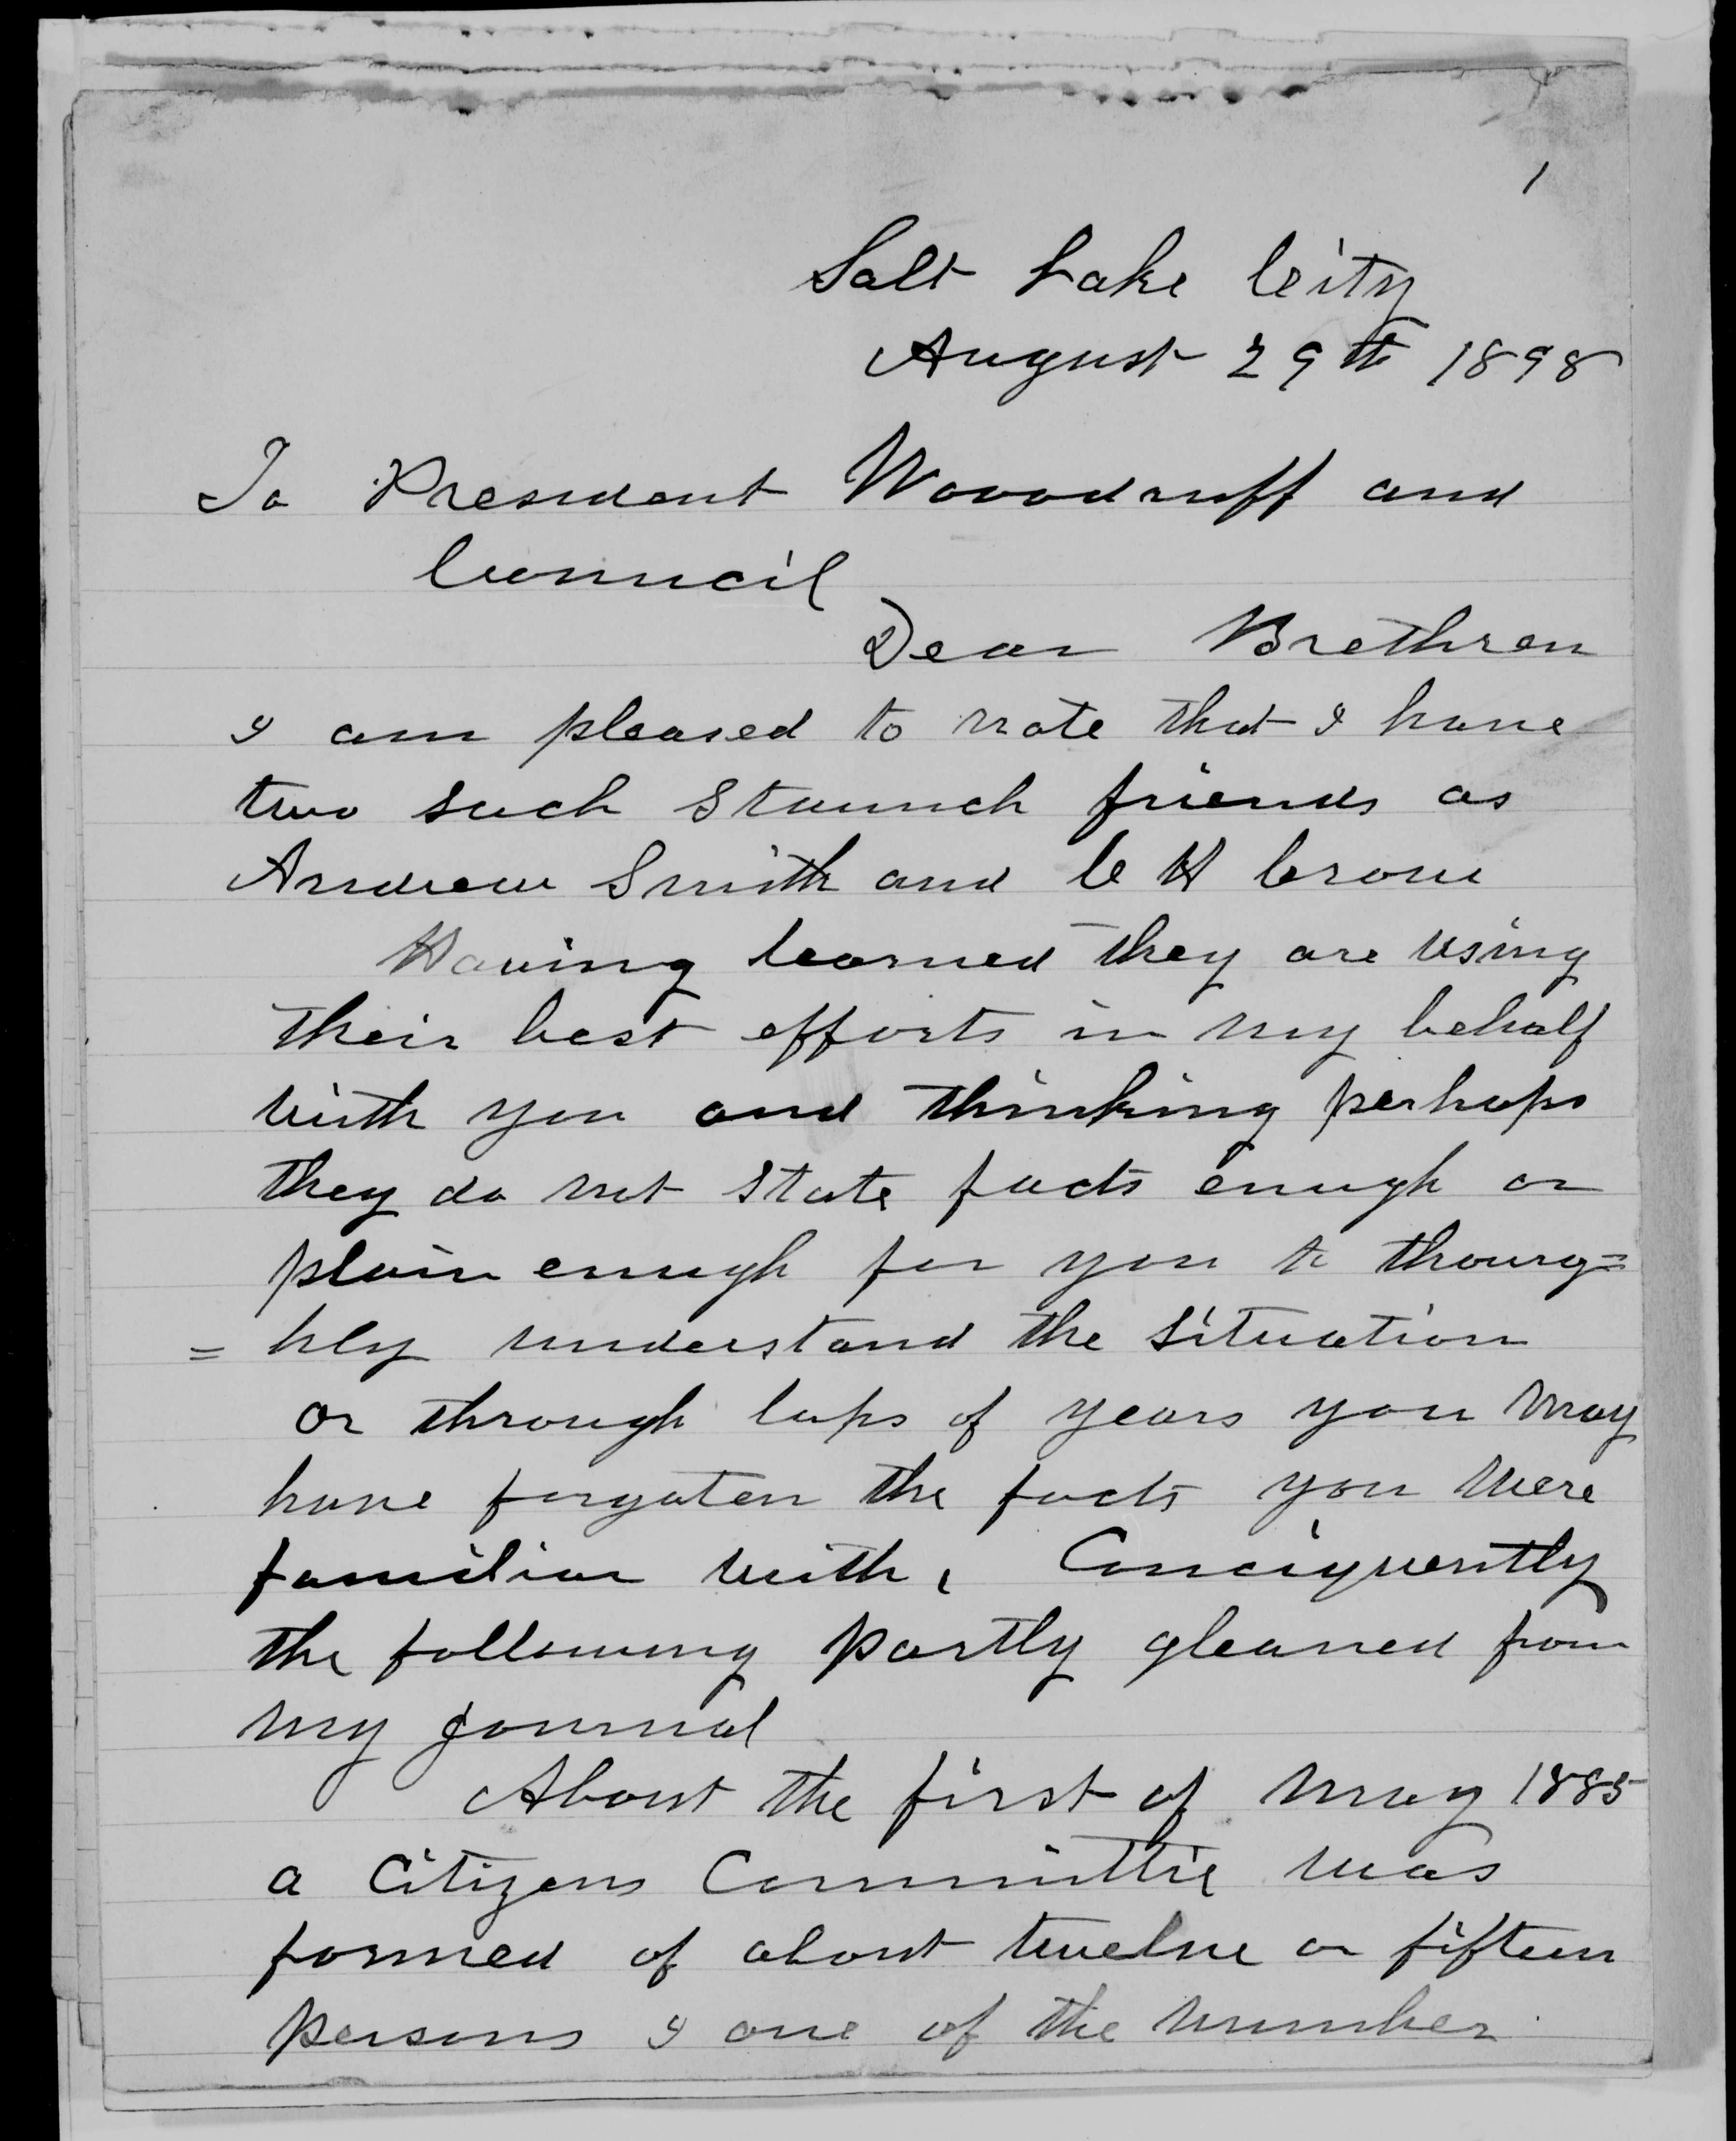 1
Salt Lake City
August 29th 1898
To President Wooodruff and
Council
Dear Brethren
I am pleased to note that I have
two such staunch friends as
Andrew Smith and C H Crow
Having learned they are using
their best efforts in my behalf
with you and thinking perhaps
they do not state facts enugh or
plain enugh for you to thourg=
=hly understand the situation
or through laps of years you may
have forgoten the facts you were
familiar with, Conciquently
the following partly gleaned from
my journal
About the first of May 1885
a Citizens Committie was
formed of about twelve or fifteen
persons I one of the number